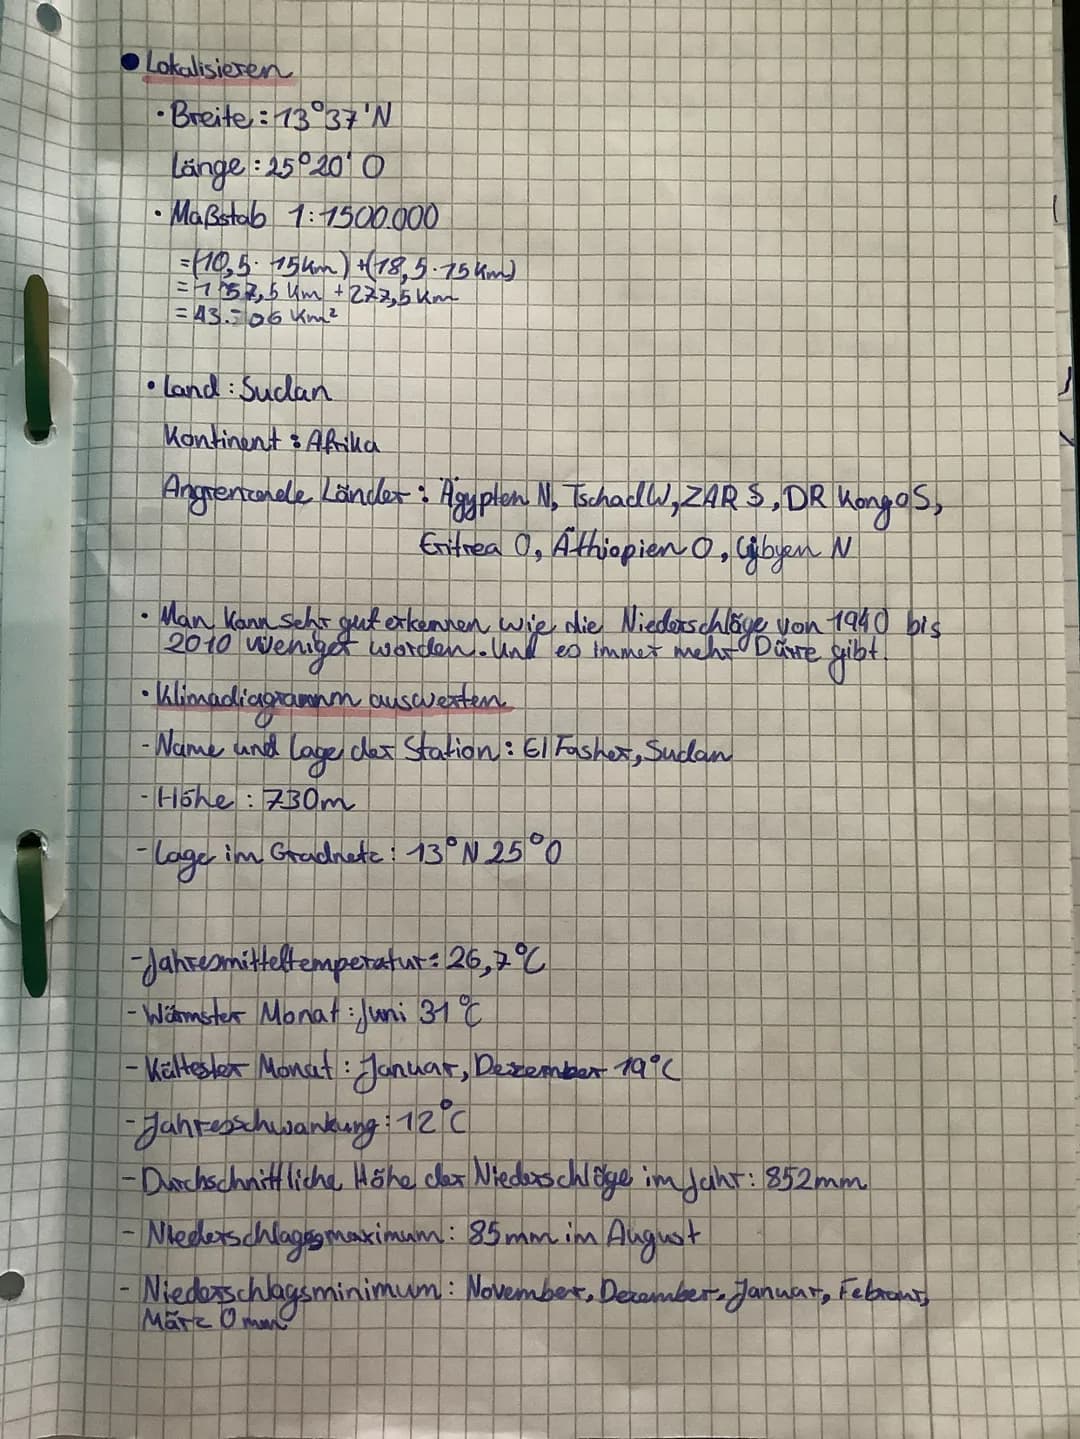 Lokalisieren
· Breite : 13°37'N
Länge : 25°20' O
· Maßstab 1:1500.000
=(10,5 · 15km) +(18,5 · 15km)
= 157,5 km + 277,5 km
km²
· Land : Sudan
Kontinent : Afrika
Angrenzende Länder : Ägypten N, Tschad W, ZAR S, DR Kongo S,
Eritrea O, Äthiopien O, Lybyen N
· Man kann sehr gut erkennen wie die Niederschläge von 1940 bis
2010 weniger worden. Und es immer mehr Dürre gibt.
· Klimadiagramm auswerten
- Name und Lage der Station : El Fasher, Sudan
- Höhe : 730m
- Lage im Gradnetz : 13°N 25°O
- Jahresmitteltemperatur : 26,7°C
- Wärmster Monat : Juni 31°C
- Kältester Monat : Januar, Dezember 19°C
- Jahresschwankung : 12°C
- Durchschnittliche Höhe der Niederschläge im Jahr : 852mm
- Niederschlagsmaximum : 85mm im August
- Niederschlagsminimum : November, Dezember, Januar, Februar,
März 0 mm